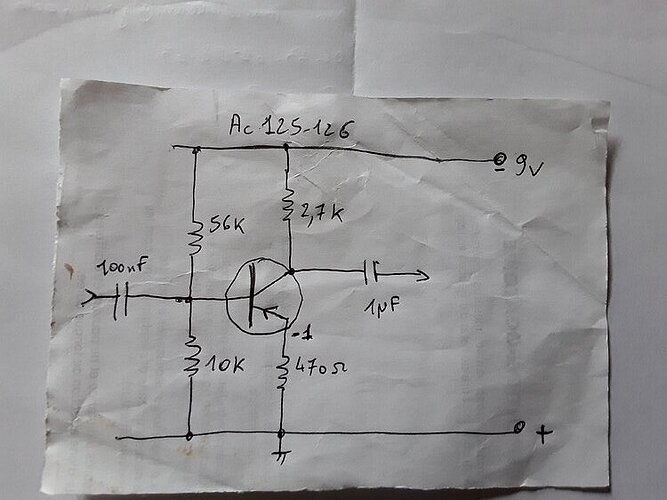 Ac 125-126
- 9V
56K
2,7K
100nF
1µF
-1
10K
470Ω
+